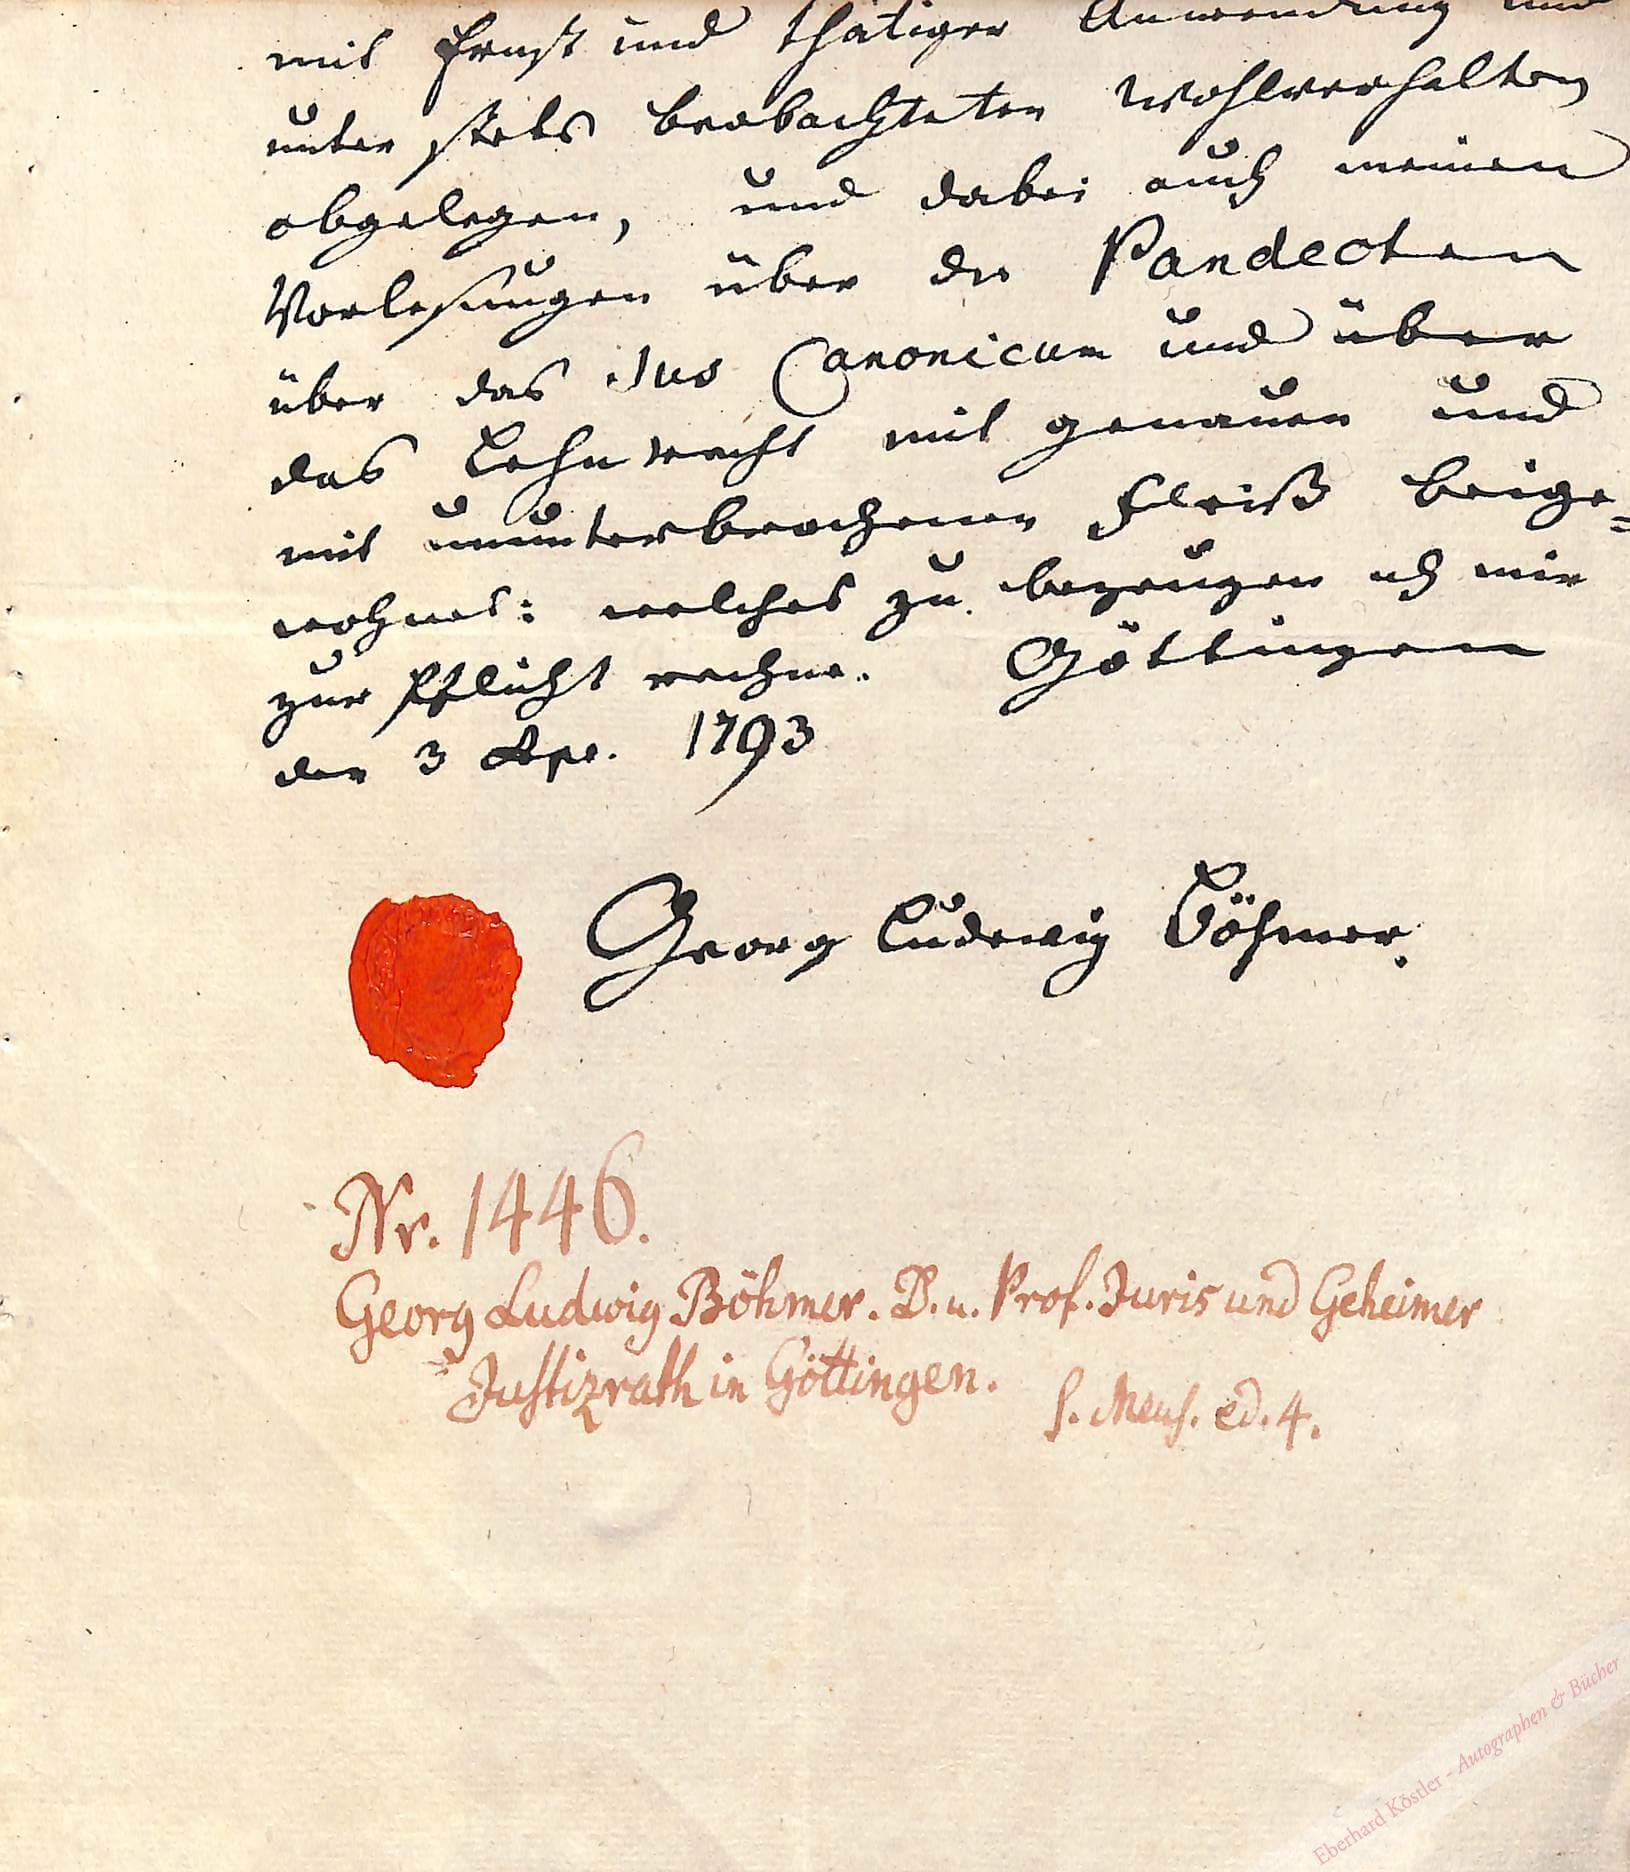 mit Ernst und thätiger Anwendung und
unter stets beobachteten Wohlverhalten
obgelegen, und dabei auch meinen
Vorlesungen über die Pandecten
über das Jus Canonicum und über
das Lehnrecht mit genauen und
mit ununterbrochenen Fleiß beige=
wohnet: welches zu bezeugen ich mir
zur Pflicht rechne. Göttingen
den 3 Apr. 1793
Georg Ludewig Böhmer.
Nr. 1446.
Georg Ludwig Böhmer. D. u. Prof. Juris und Geheimer
Justizrath in Göttingen.
s. Meus. ed. 4.
Eberhard Köstler - Autographen & Bücher